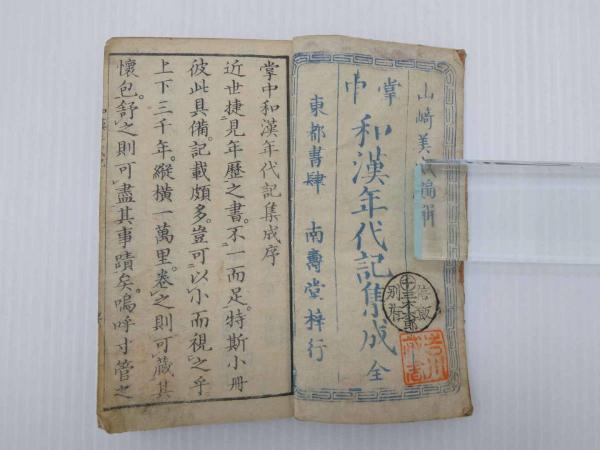 山崎美成編輯
掌中
和漢年代記集成 全
東都書肆 南壽堂梓行
掌中和漢年代記集成序
近世捷見年歷之書。不一而足。特斯小冊
彼此具備。記載頗多。豈可以小而視之乎
上下三千年。縱橫一萬里。卷之則可藏其
懷包。舒之則可盡其事蹟矣。嗚呼寸管之